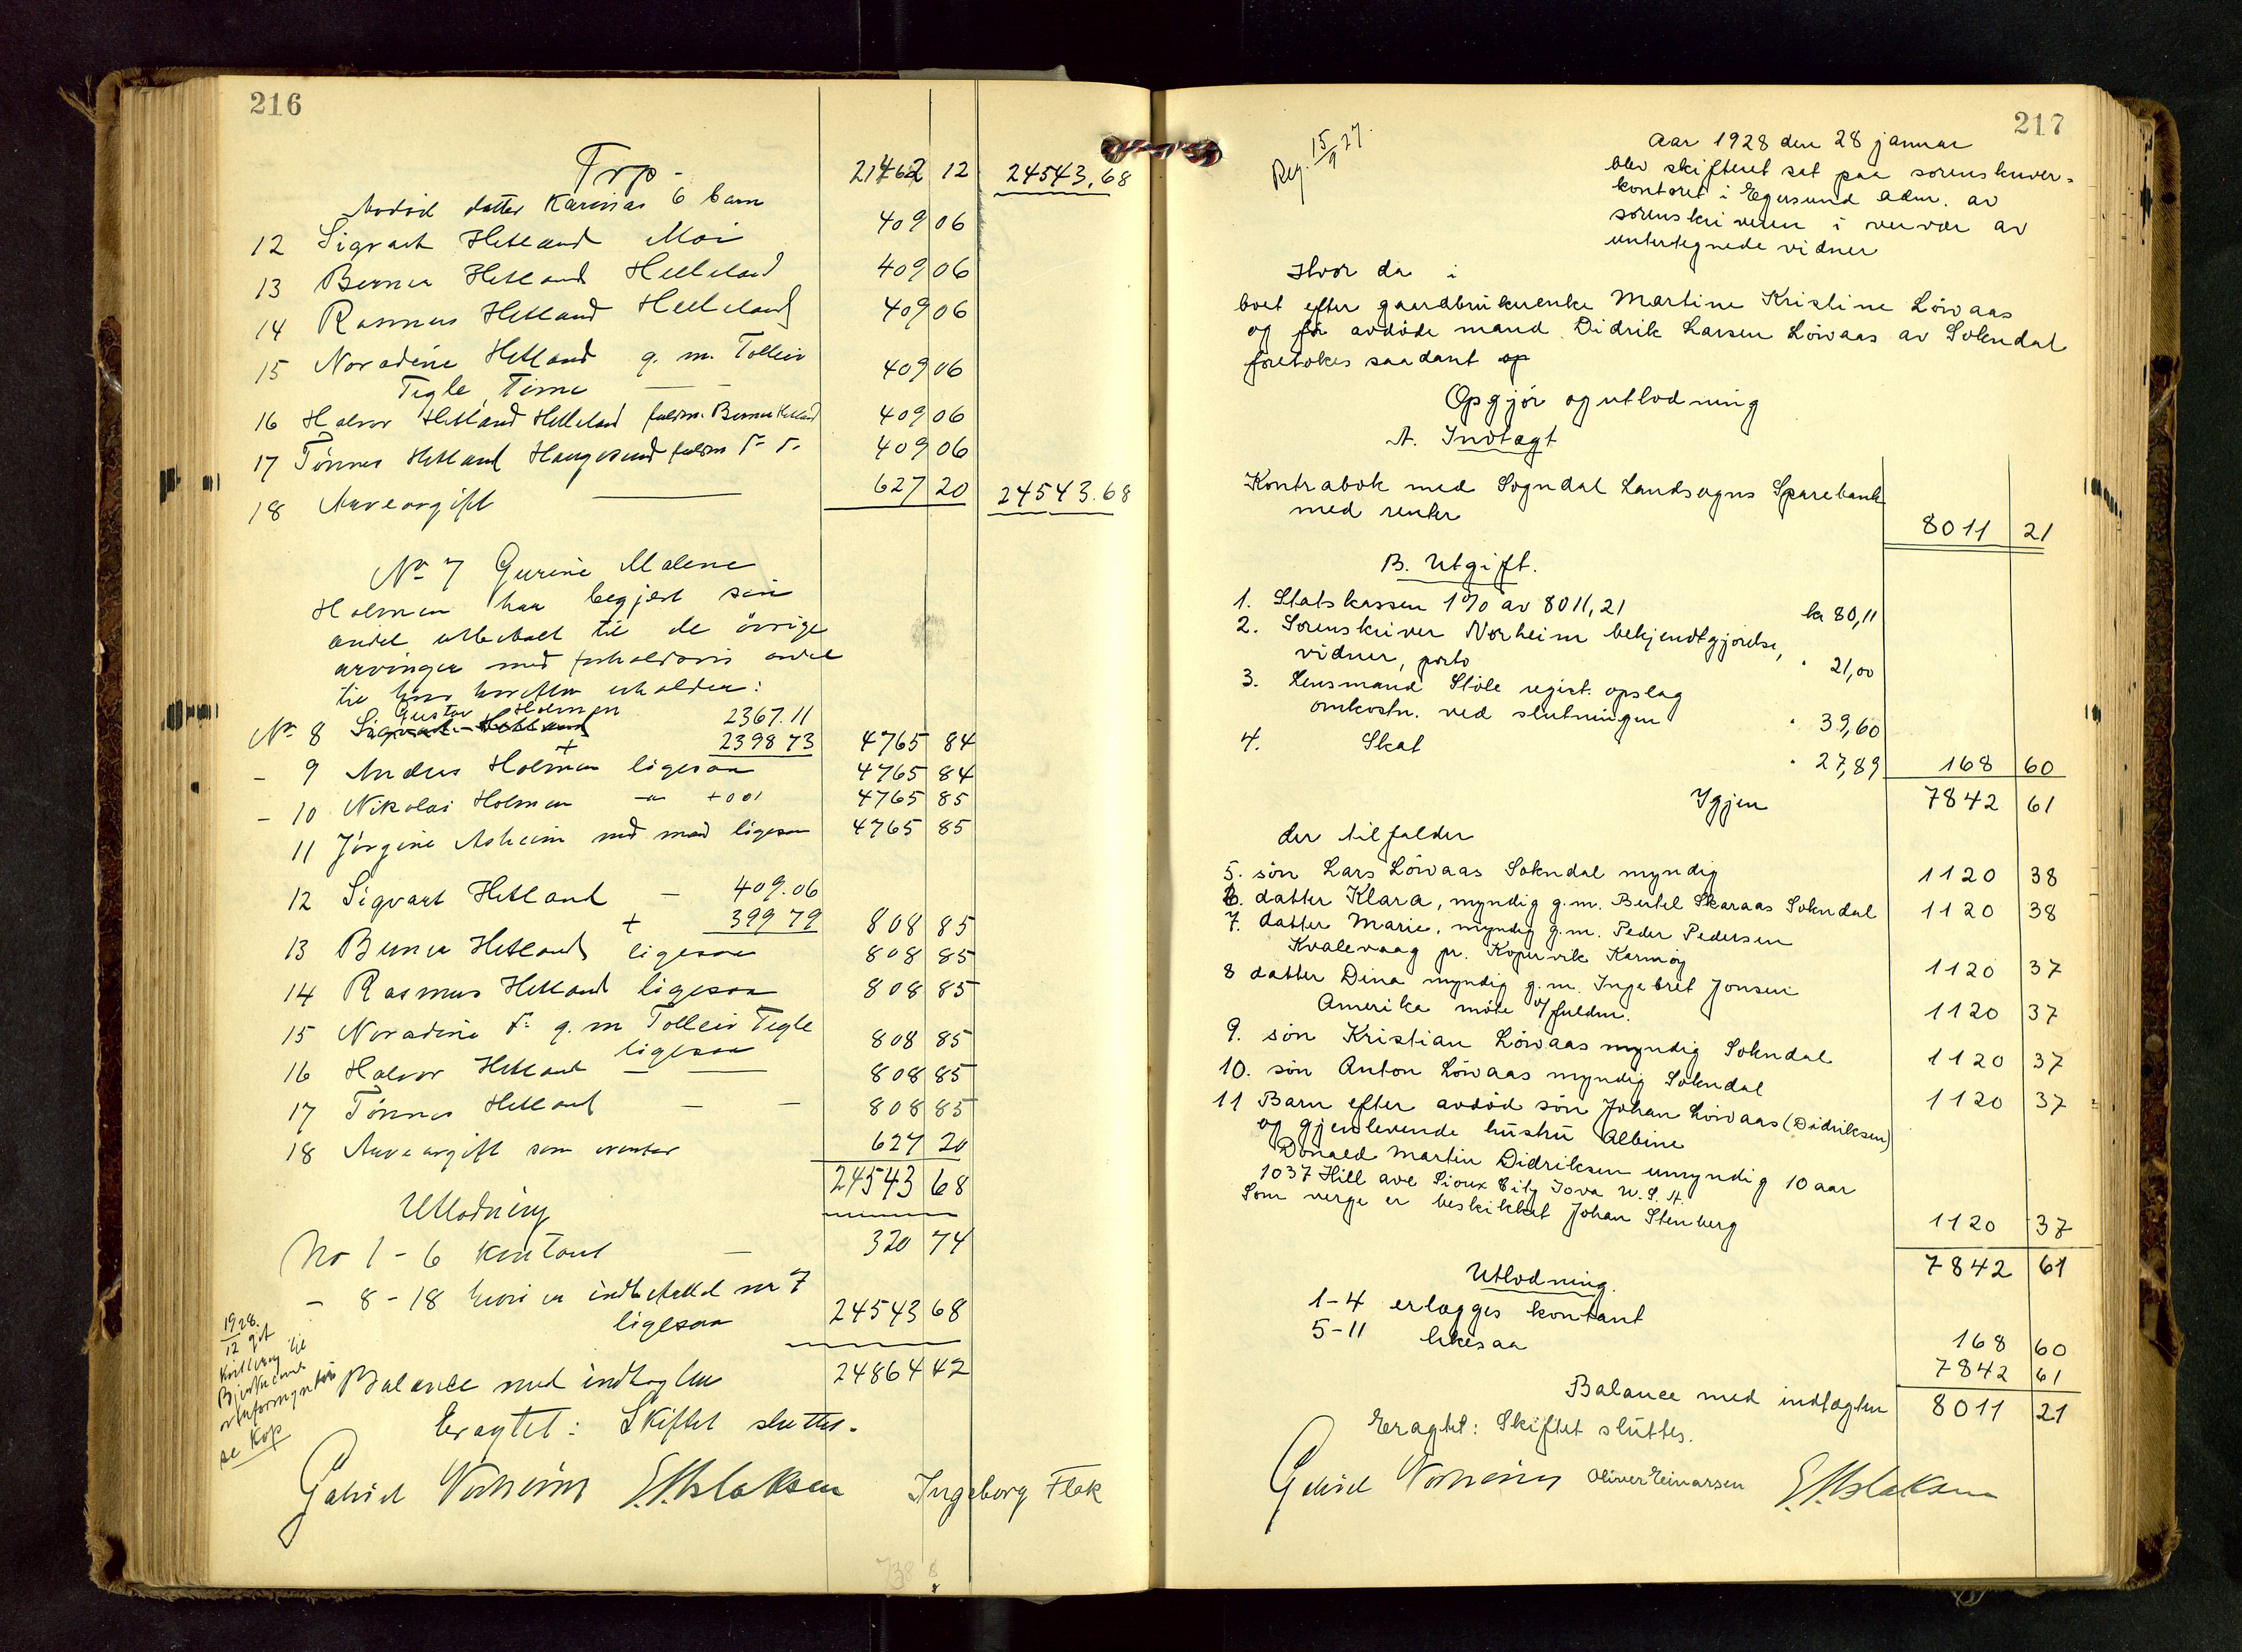 216
Trp - 21462 12 24543.68
Avdöd datter Karinas 6 barn
12 Sigvart Hetland Moi 409 06
13 Berner Hetland Helleland 409 06
14 Rasmus Hetland Helleland 409 06
15 Noradine Hetland g. m. Tolleiv
Tegle, Time 409 06
16 Halvor Hetland Helleland fuldm. Berner Hetland 409 06
17 Tönnes Hetland Haugesund fuldm 409 06
18 Arveavgift 627 20 24543.68
No 7 Gurine Malene
Holmen har begjert sin
andel utbetalt til de övrige
arvinger med forholdsvis andel
til hver herefter erholder:
Gustav Holmen
No 8 Sigvart Hetland 2367.11
+ 2398 73 4765 84
- 9 Andreas Holmen ligesaa 4765 84
- 10 Nikolai Holmen - + 001 4765 85
11 Jörgine Asheim med mand ligesaa 4765 85
12 Sigvart Hetland - 409.06
+ 399 79 808 85
13 Berner Hetland ligesaa 808 85
14 Rasmus Hetland ligesaa 808 85
15 Noradine g. m Tolleiv Tegle
ligesaa 808 85
16 Halvor Hetland 808 85
17 Tönnes Hetland - - 808 85
18 Arveavgift som ovenfor 627 20
24543 68
Utlodning
No 1 - 6 kontant - 320 74
- 8 - 18 indbefattet nr 7
ligesaa 24543 68
Balance med indtægten 24864 42
Eragtet: Skiftet sluttes.
1928.
se Kop
Gabriel Norheim E. Aslaksen Ingeborg Flak
217
Reg. 15/9 27.
Aar 1928 den 28 januar
blev skifteret sat paa sorenskriver-
kontoret i Egersund adm. av
sorenskriveren i nervær av
undertegnede vidner
Hvor da i
boet efter gaardbrukerenke Martine Kristine Löivaas
og før avdöde mand Didrik Larsen Löivaas av Sokndal
foretokes saadant op
Opgjör og utlodning
A. Indtægt
Kontrabok med Sogndal Landsogns Sparebank
med renter 8011 21
B. Utgift.
1. Statskassen 1% av 8011,21 kr 80,11
2. Sorenskriver Norheim bekjendtgjörelse,
vidner, porto " 21,00
3. Lensmand Stöle regist. opslag
omkostn. ved slutningen " 39,60
4. Skat " 27,89 168 60
Igjen 7842 61
der tilfalder
5. sön Lars Löivaas Sokndal myndig 1120 38
6. datter Klara, myndig g.m. Bertel Skaraas Sokndal 1120 38
7. datter Marie, myndig g.m. Peder Pedersen
Kvalevaag pr. Kopervik Karmöy 1120 37
8 datter Dina myndig g.m. Ingebret Jonsen
Amerika möte v/fuldm. 1120 37
9. sön Kristian Löivaas myndig Sokndal 1120 37
10. sön Anton Löivaas myndig Sokndal 1120 37
11 Barn efter avdöd sön Johan Löivaas (Didriksen)
og gjenlevende hustru Albine
Donald Martin Didriksen umyndig 10 aar
1037 Hill ave Sioux City Iova U.S.A.
Som verge er beskikket Johan Stenberg 1120 37
7842 61
Utlodning.
1-4 erlægges kontant 168 60
5-11 likesaa 7842 61
Balance med indtægten 8011 21
Eragtet: Skiftet sluttes.
Gabriel Norheim Oliver Einarsen E. Aslaksen